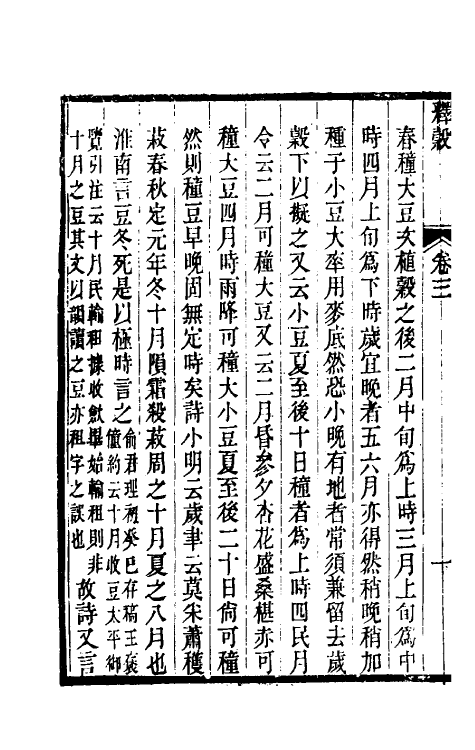 釋穀 卷三 一
春種大豆次植穀之後二月中旬爲上時三月上旬爲中
時四月上旬爲下時歲宜晚者五六月亦得然稍晚稍加
種子小豆大率用麥底然恐小晚有地者常須兼留去歲
穀下以擬之又云小豆夏至後十日種者爲上時四民月
令云二月可種大豆又云二月昏參夕杏花盛桑椹赤可
種大豆四月時雨降可種大小豆夏至後二十日尙可種
然則種豆早晚固無定時矣詩小明云歲聿云莫采蕭穫
菽春秋定元年冬十月隕霜殺菽周之十月夏之八月也
淮南言豆冬死是以極時言之俞君理初癸巳存稿王褒僮約云十月收豆太平御
覽引注云十月民輸租據收斂畢始輸租則非十月之豆其文以韻讀之豆亦租字之誤也故詩又言